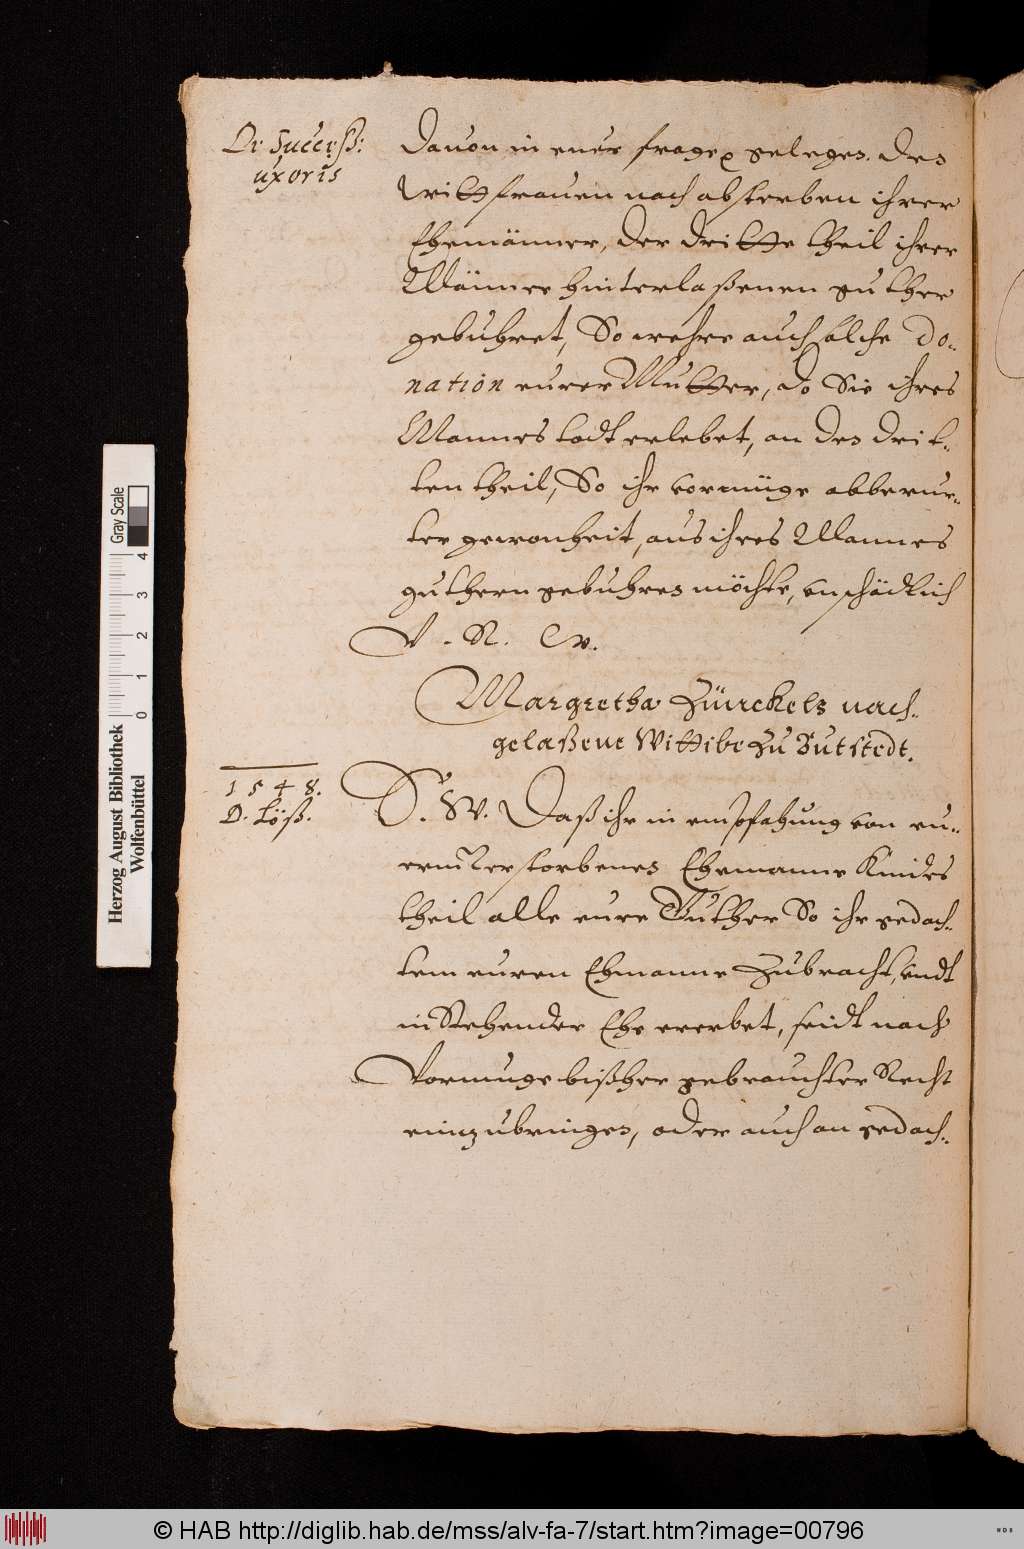 De Success:
uxoris
Dauon in euer frage gelegen. den
Wittfrauen nach absterben ihrer
Ehemänner, der dritte theil ihrer
Männer hinterlaßenen guther
gebuhret, So wehre auch solche do-
nation eurer Mutter, do Sie ihres
Mannes todt erlebet, an den drit-
ten theil, So ihr vormüge obberur-
ter gewonheit, aus ihres Mannes
guthern gebuhren möchte, vnschädlich
V. R. W.
Margretha Zürckels nach-
gelaßene Wittibe zu Butstedt.
1548.
D. Löß.
D. W. Daß ihr in empfahung von eu-
erm Verstorbenen Ehemanne Kindes
theil alle eure Guther So ihr gedach-
tem euren Ehmanne Zubracht, vndt
in Stehender Ehe ererbet, seidt nach
Vormuge bißher gebrauchter Recht
einzubringen, oder auch an gedach-
Herzog August Bibliothek
Wolfenbüttel
0 1 2 3 4
Gray Scale
© HAB http://diglib.hab.de/mss/alv-fa-7/start.htm?image=00796